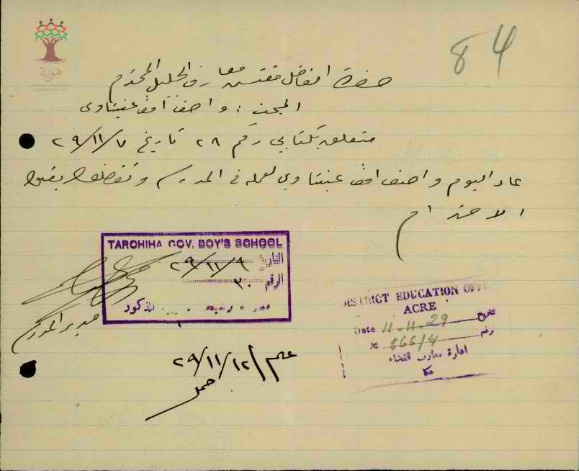 84
حضرة الفاضل مفتش معارف الجليل المحترم
المبحث : واصف افندي عنبتاوي
متعلق بكتابي رقم ٢٨ تاريخ ٢٩/١١/٧
عاد اليوم واصف افندي عنبتاوي لعمله في المدرسة وتفضلوا بقبول
الاحترام
TARCHIHA GOV. BOY'S SCHOOL
التاريخ ٢٩/١١/٩
الرقم ٣٠
للذكور
مدير المدرسة
DISTRICT EDUCATION OFFICE
ACRE
Date 11.11.29 تاريخ
№ 866/4 رقم
ادارة معارف قضاء
عكا
علم ٢٩/١١/١٢